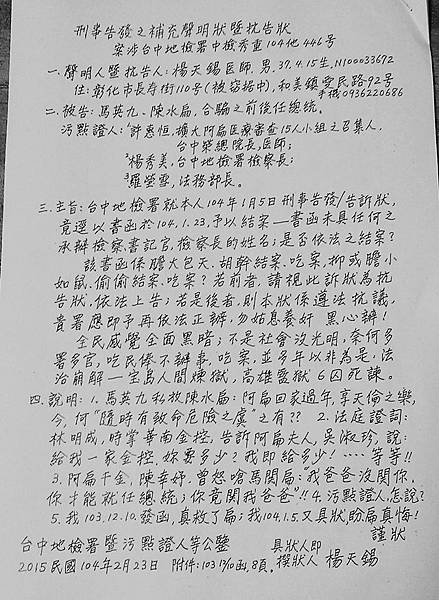 刑事告發之補充聲明狀暨抗告狀
案涉台中地檢署中檢秀重104他446号
一.聲明人暨抗告人:楊天錫医師.男.37.4.15生.N100033692
住:彰化市長寿街110号(被窃据中),和美鎮愛民路92号
手機0936220686
二.被告:馬英九、陳水扁,合騙之前後任總統。
污點證人:¹許惠恒,擴大阿扁医療審查15人小組之召集人.
台中榮總院長,医師;
²楊秀美,台中地檢署檢察長;
³羅瑩雪,法務部長。
三.主旨:台中地檢署就本人104年1月5日刑事告發/告訴狀,
竟逕以書函於104.1.23.予以結案—書函未具任何之
承辦檢察書記官,檢察長的姓名;是否依法之結案?
該書函係膽大包天.胡幹結案、吃案,抑或膽小
如鼠.偷偷結案、吃案?若前者,請視此訴狀為抗
告狀.依法上告;若是後者,則本狀係遵法抗議,
貴署應即予再依法正辦,勿姑息養奸 黑心辦!
全民感覺全面黑暗;不是社會沒光明,奈何多
署多官,吃民俸不辦事.吃案,並多年以非為是,法
治崩解—宝島人間煉獄,高雄監獄6囚死諫。
四.說明:1.馬英九私放陳水扁:阿扁回家過年,享天倫之樂,
今,何"隨時有致命危險之虞"之有?? 2.法庭證詞:
林明成,時掌華南金控,告訴阿扁夫人,吳淑珍,說:
給我一家金控.妳要多少?我即給多少!‥‥等等!!
3.阿扁千金,陳幸妤.曾怒嗆馬関扁:"我爸爸沒関你,
你才能就任總統;你竟関我爸爸"!!4.污點證人,怎說?
5.我103.12.10.發函,真救了扁;我104.1.5.又具狀,盼扁真悔!
謹狀
台中地檢署暨污點證人等公鑒
具狀人即
2015民國104年2月23日 附件:103 12/10函,8頁. 撰狀人 楊天錫